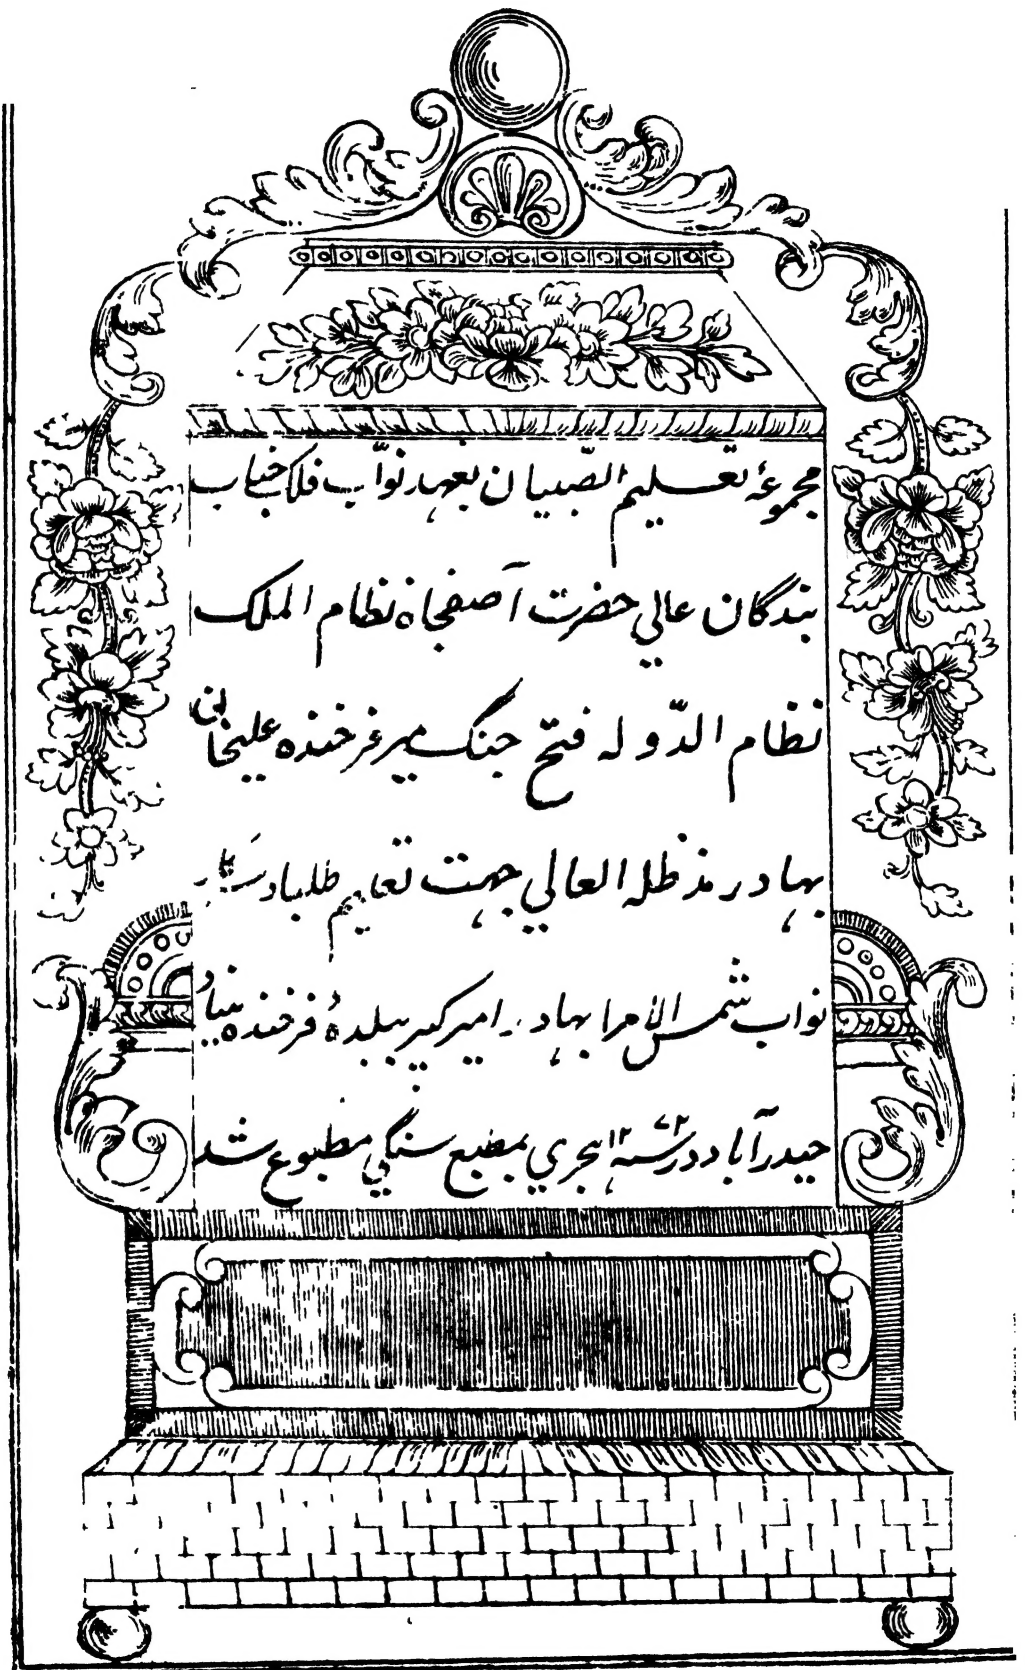 مجموعۀ تعلیم الصّبیان بعهد نوّاب فلک جناب
بندگان عالي حضرت آصفجاه نظام الملک
نظام الدّوله فتح جنگ میر فرخنده علیخان
بهادر مد ظله العالي جهت تعلیم طلبا
نواب شمس الأمرا بهادر امیر کبیر ببلدۀ فرخنده بنیاد
حیدرآباد در سنه ۱۲۷۲ هجري بمطبع سنگي مطبوع شد